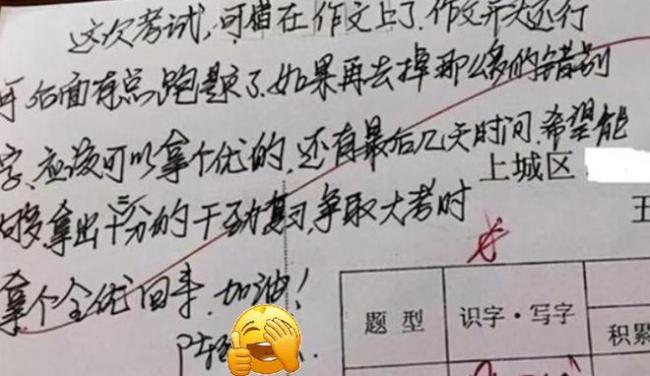 这次考试,可惜在作文上了.作文开头还行
可后面有点跑题了.如果再去掉那么多的错别
字、应该可以拿个优的.还有最后几天时间.希望能
够拿出十二分的干劲复习,争取大考时
拿个全优回来.加油!
上城区
题 型
识字·写字
积累